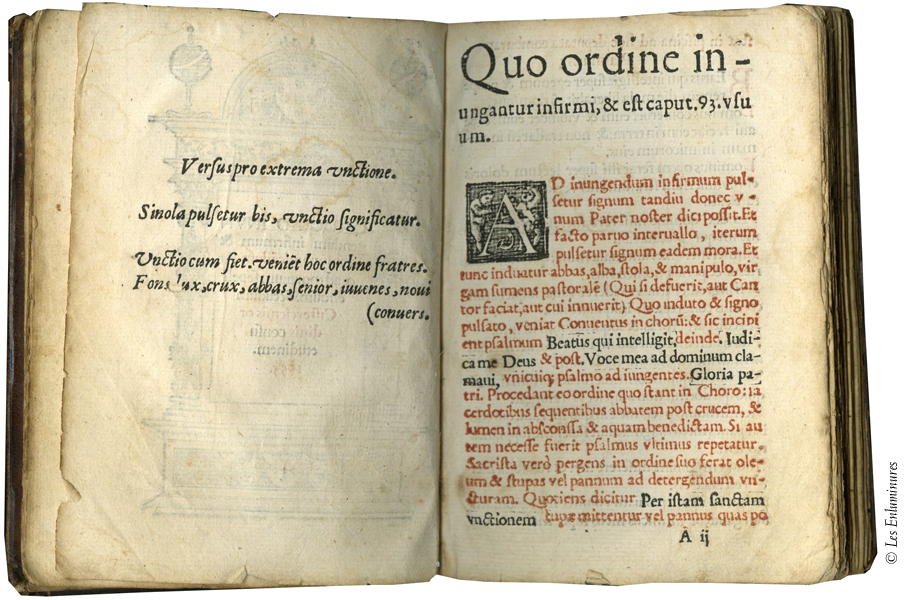 Versus pro extrema vnctione.
Sinola pulsetur bis, vnctio significatur.
Vnctio cum fiet. veniēt hoc ordine fratres.
Fons lux, crux, abbas, senior, iuuenes, noui
(conuers.
Quo ordine in-
ungantur infirmi, & est caput. 93. vsu
um.
AD inungendum infirmum pul-
setur signum tandiu donec v-
num Pater noster dici possit. Et
facto paruo interuallo, iterum
pulsetur signum eadem mora. Et
tunc induatur abbas, alba, stola, & manipulo, vir
gam sumens pastoralē (Qui si defuerit, aut Can
tor faciat, aut cui innuerit) Quo induto & signo
pulsato, veniat Conuentus in chorū: & sic incipi
ent psalmum Beatus qui intelligit, deinde. Iudi-
ca me Deus & post. Voce mea ad dominum cla-
maui, vnicuiq; psalmo ad iungentes. Gloria pa-
tri. Procedant eo ordine quo stant in Choro: sa
cerdotibus sequentibus abbatem post crucem, &
lumen in absconsa & aquam benedictam. Si au
tem necesse fuerit psalmus vltimus repetatur.
Sacrista verò pergens in ordine suo ferat ole-
um & stupas vel pannum ad detergendum vn-
cturam. Quotiens dicitur Per istam sanctam
vnctionem stupæ mittentur vel pannus quas po
A ij
© Les Enluminures